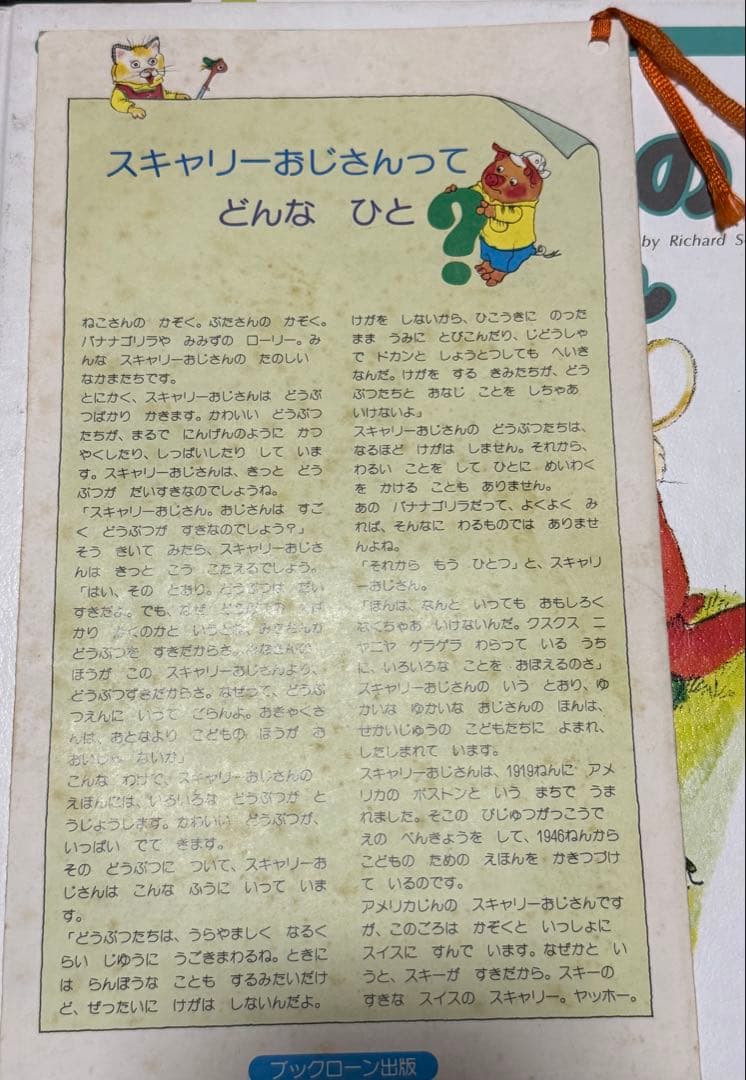 スキャリーおじさんって
どんな　ひと
?
ねこさんの　かぞく。ぶたさんの　かぞく。
バナナゴリラや　みみずの　ローリー。み
んな　スキャリーおじさんの　たのしい
なかまたちです。
とにかく、スキャリーおじさんは　どうぶ
つばかり　かきます。かわいい　どうぶつ
たちが、まるで　にんげんのように　かつ
やくしたり、しっぱいしたり　して　いま
す。スキャリーおじさんは、きっと　どう
ぶつが　だいすきなのでしょうね。
「スキャリーおじさん。おじさんは　すご
く　どうぶつが　すきなのでしょう？」
そう　きいて　みたら、スキャリーおじさ
んは　きっと　こう　こたえるでしょう。
「はい、その　とおり。どうぶつは　だい
すきだよ。でも、なぜ　どうぶつ
かり　かくのかと　いうと
どうぶつを　すきだからさ。みなさんの
ほうが　この　スキャリーおじさんより、
どうぶつずきだからさ。なぜって、どうぶ
つえんに　いって　ごらんよ。おきゃくさ
んは、おとなより　こどもの　ほうが　お
おいじゃ　ないか」
こんな　わけで、スキャリーおじさんの
えほんには、いろいろな　どうぶつが　と
うじょうします。かわいい　どうぶつが、
いっぱい　でて　きます。
その　どうぶつに　ついて、スキャリーお
じさんは　こんな　ふうに　いって　いま
す。
「どうぶつたちは、うらやましく　なるく
らい　じゆうに　うごきまわるね。ときに
は　らんぼうな　ことも　するみたいだけ
ど、ぜったいに　けがは　しないんだよ。
けがを　しないから、ひこうきに　のった
まま　うみに　とびこんだり、じどうしゃ
で　ドカンと　しょうとつしても　へいき
なんだ。けがを　する　きみたちが、どう
ぶつたちと　おなじ　ことを　しちゃあ
いけないよ」
スキャリーおじさんの　どうぶつたちは、
なるほど　けがは　しません。それから、
わるい　ことを　して　ひとに　めいわく
を　かける　ことも　ありません。
あの　バナナゴリラだって、よくよく　み
れば、そんなに　わるものでは　ありませ
んよね。
「それから　もう　ひとつ」と、スキャリ
ーおじさん。
「ほんは、なんと　いっても　おもしろく
なくちゃあ　いけないんだ。クスクス　ニ
ヤニヤ　ゲラゲラ　わらって　いる　うち
に、いろいろな　ことを　おぼえるのさ」
スキャリーおじさんの　いう　とおり、ゆ
かいな　ゆかいな　おじさんの　ほんは、
せかいじゅうの　こどもたちに　よまれ、
したしまれて　います。
スキャリーおじさんは、1919ねんに　アメ
リカの　ボストンと　いう　まちで　うま
れました。そこの　びじゅつがっこうで
えの　べんきょうを　して、1946ねんから
こどもの　ための　えほんを　かきつづけ
て　いるのです。
アメリカじんの　スキャリーおじさんです
が、このごろは　かぞくと　いっしょに
スイスに　すんで　います。なぜかと　い
うと、スキーが　すきだから。スキーの
すきな　スイスの　スキャリー。ヤッホー。
ブックローン出版
の
by Richard S